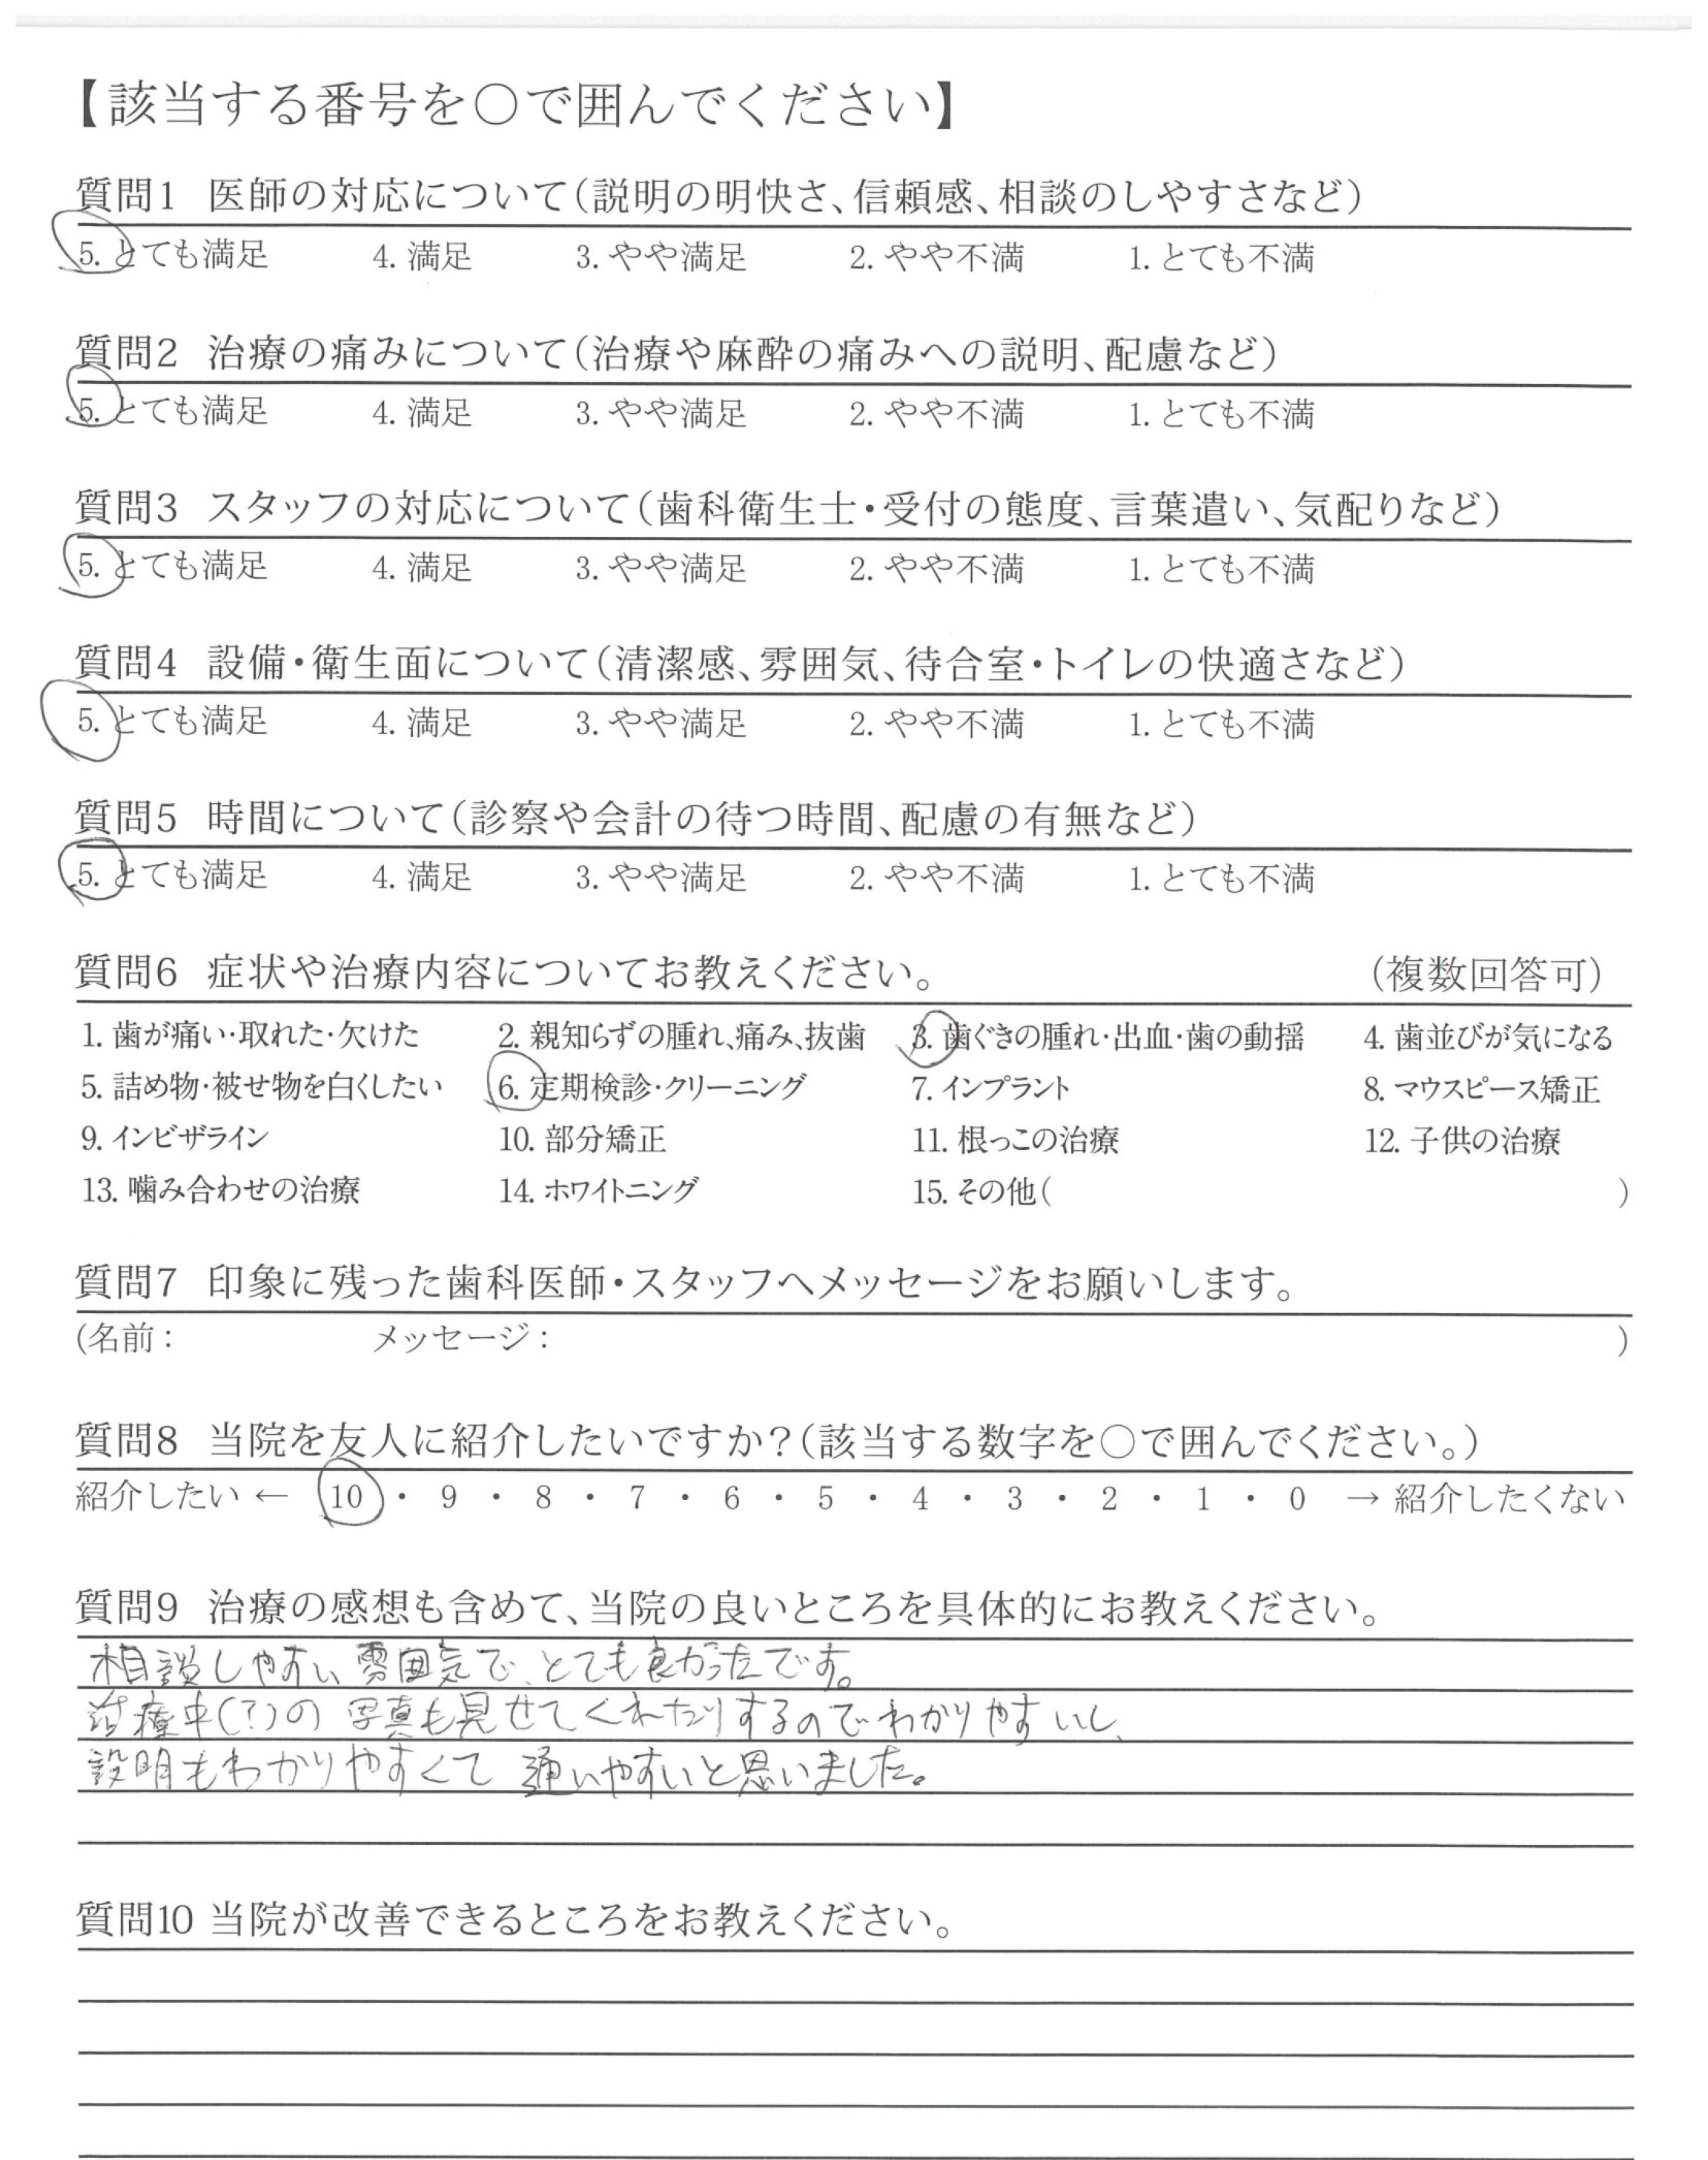 【該当する番号を○で囲んでください】
質問1 医師の対応について(説明の明快さ、信頼感、相談のしやすさなど)
5. とても満足 4. 満足 3. やや満足 2. やや不満 1. とても不満
質問2 治療の痛みについて(治療や麻酔の痛みへの説明、配慮など)
5. とても満足 4. 満足 3. やや満足 2. やや不満 1. とても不満
質問3 スタッフの対応について(歯科衛生士・受付の態度、言葉遣い、気配りなど)
5. とても満足 4. 満足 3. やや満足 2. やや不満 1. とても不満
質問4 設備・衛生面について(清潔感、雰囲気、待合室・トイレの快適さなど)
5. とても満足 4. 満足 3. やや満足 2. やや不満 1. とても不満
質問5 時間について(診察や会計の待つ時間、配慮の有無など)
5. とても満足 4. 満足 3. やや満足 2. やや不満 1. とても不満
質問6 症状や治療内容についてお教えください。 (複数回答可)
1. 歯が痛い・取れた・欠けた 2. 親知らずの腫れ、痛み、抜歯 3. 歯ぐきの腫れ・出血・歯の動揺 4. 歯並びが気になる
5. 詰め物・被せ物を白くしたい 6. 定期検診・クリーニング 7. インプラント 8. マウスピース矯正
9. インビザライン 10. 部分矯正 11. 根っこの治療 12. 子供の治療
13. 噛み合わせの治療 14. ホワイトニング 15. その他( )
質問7 印象に残った歯科医師・スタッフへメッセージをお願いします。
(名前: メッセージ: )
質問8 当院を友人に紹介したいですか?(該当する数字を○で囲んでください。)
紹介したい ← 10 ・ 9 ・ 8 ・ 7 ・ 6 ・ 5 ・ 4 ・ 3 ・ 2 ・ 1 ・ 0 → 紹介したくない
質問9 治療の感想も含めて、当院の良いところを具体的にお教えください。
相談しやすい雰囲気で、とても良かったです。
治療中(?)の写真も見せてくれたりするのでわかりやすいし、
説明もわかりやすくて通いやすいと思いました。
質問10 当院が改善できるところをお教えください。